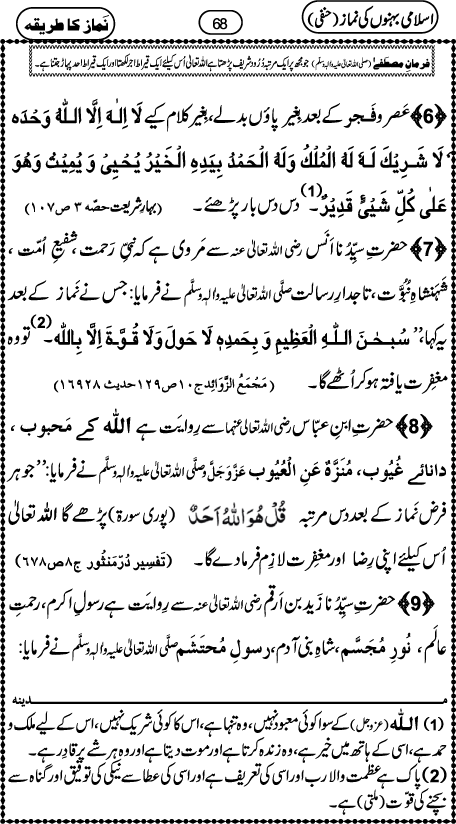 اسلامی بہنوں کی نماز (حنفی)
68
نماز کا طریقہ
فرمانِ مصطفٰے: (صلی اللہ تعالیٰ علیہ والہ وسلّم) جو مجھ پر ایک مرتبہ دُرُود شریف پڑھتا ہے اللہ تعالیٰ اُس کیلئے ایک قیراط اجر لکھتا اور ایک قیراط احد پہاڑ جتنا ہے۔
﴿6﴾ عَصر و فَجر کے بعد بغیر پاؤں بدلے، بغیر کلام کیے لَا اِلٰـہَ اِلَّا اللّٰہُ وَحْدَہٗ
لَا شَرِیْکَ لَہٗ لَہُ الْمُلْکُ وَلَہُ الْحَمْدُ بِیَدِہِ الْخَیْرُ یُحْیِیْ وَ یُمِیْتُ وَھُوَ
عَلٰی کُلِّ شَیْئٍ قَدِیْرٌ۔(1) دس دس بار پڑھئے۔ (بہارِ شریعت حصّہ ۳ ص۱۰۷)
﴿7﴾ حضرتِ سیِّدُنا اَنَس رضی اللہ تعالیٰ عنہ سے مَروی ہے کہ نبیِّ رَحمت، شفیعِ اُمّت،
شَہَنشاہِ نبُوَّت، تاجدارِ رسالت صلَّی اللہ تعالیٰ علیہ والہٖ وسلَّم نے فرمایا: جس نے نَماز کے بعد
یہ کہا: ’’سُبحٰنَ اللہِ الْعَظِیْمِ وَ بِحَمدِہٖ لَا حَولَ وَلَا قُوَّۃَ اِلَّا بِاللہ۔‘‘(2) تو وہ
مغفِرت یافتہ ہو کر اُٹھے گا۔ (مَجْمَعُ الزَّوَائِد ج۱۰ ص۱۲۹ حدیث ۱۶۹۲۸)
﴿8﴾ حضرتِ ابنِ عبّاس رضی اللہ تعالیٰ عنہما سے رِوایَت ہے اللہ کے مَحبوب،
دانائے غُیُوب، مُنَزَّہٌ عَنِ الْعُیُوب عَزَّوَجَلَّ وصلَّی اللہ تعالیٰ علیہ والہ وسلَّم نے فرمایا: ’’جو ہر
فرض نَماز کے بعد دس مرتبہ قُلْ ھُوَ اللہُ اَحَدٌ (پوری سورۃ) پڑھے گا اللہ تعالیٰ
اُس کیلئے اپنی رِضا اور مغفرت لازِم فرما دے گا۔ (تَفسِیر دُرّمَنثُور ج۸ ص۶۷۸)
﴿9﴾ حضرتِ سیِّدُنا زَید بن اَرقم رضی اللہ تعالیٰ عنہ سے رِوایت ہے رسولِ اکرم، رحمتِ
عالَم، نورِ مُجَسَّم، شاہِ بنی آدم، رسولِ مُحتَشَم صلَّی اللہ تعالیٰ علیہ والہ وسلَّم نے فرمایا:
مدینہ
(1) اللہ (عزوجل) کے سوا کوئی معبود نہیں، وہ تنہا ہے، اس کا کوئی شریک نہیں، اس کے لیے ملک و
حمد ہے، اسی کے ہاتھ میں خیر ہے، وہ زندہ کرتا ہے اور موت دیتا ہے اور وہ ہر شے پر قادِر ہے۔
(2) پاک ہے عظمت والا رب اور اسی کی تعریف ہے اور اسی کی عطا سے نیکی کی توفیق اور گناہ سے
بچنے کی قوّت (ملتی) ہے۔